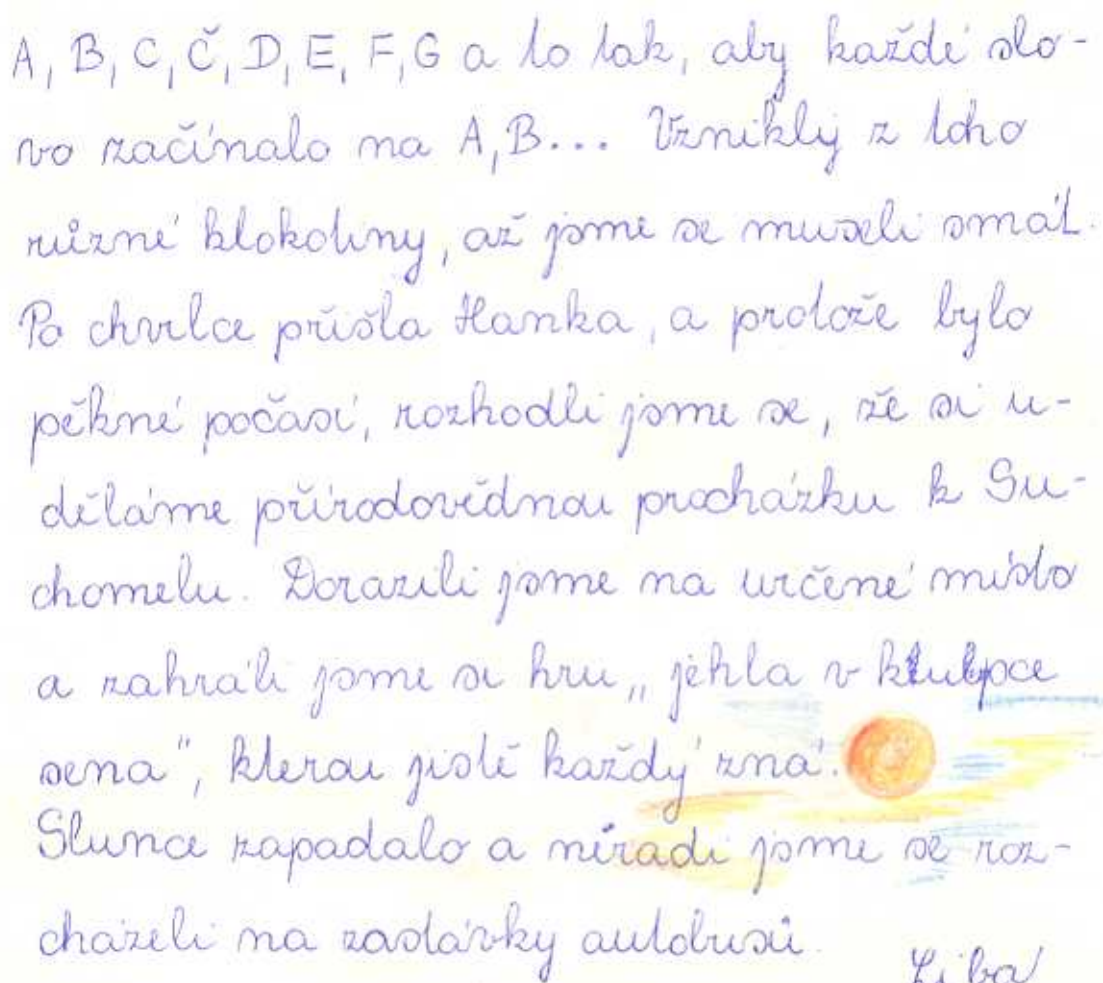 A, B, C, Č, D, E, F, G a to tak, aby každé slo-
vo začínalo na A, B... Vznikly z toho
různé klokotiny, až jsme se museli smát.
Po chvilce přišla Hanka, a protože bylo
pěkné počasí, rozhodli jsme se, že si u-
děláme přírodovědnou procházku k Su-
chomelu. Dorazili jsme na určené místo
a zahráli jsme si hru „jehla v kupce
sena", kterou jistě každý zná.
Slunce zapadalo a neradi jsme se roz-
cházeli na zastávky autobusů.
Liba